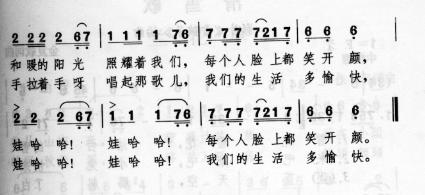 2 2 2 2 67 | 1 1 1 1 76 | 7 7 7 7 7217 | 6 6 6 |
和暖的阳光 照耀着我们， 每个人脸上都 笑开颜，
手拉着手呀 唱起那歌儿， 我们的生活 多愉快，
2 2 2 | 1 1 76 | 7 7 7 7 7217 | 6 6 6 ‖
娃哈哈! 娃哈哈! 每个人脸上都 笑开颜。
娃哈哈! 娃哈哈! 我们的生活 多愉快。